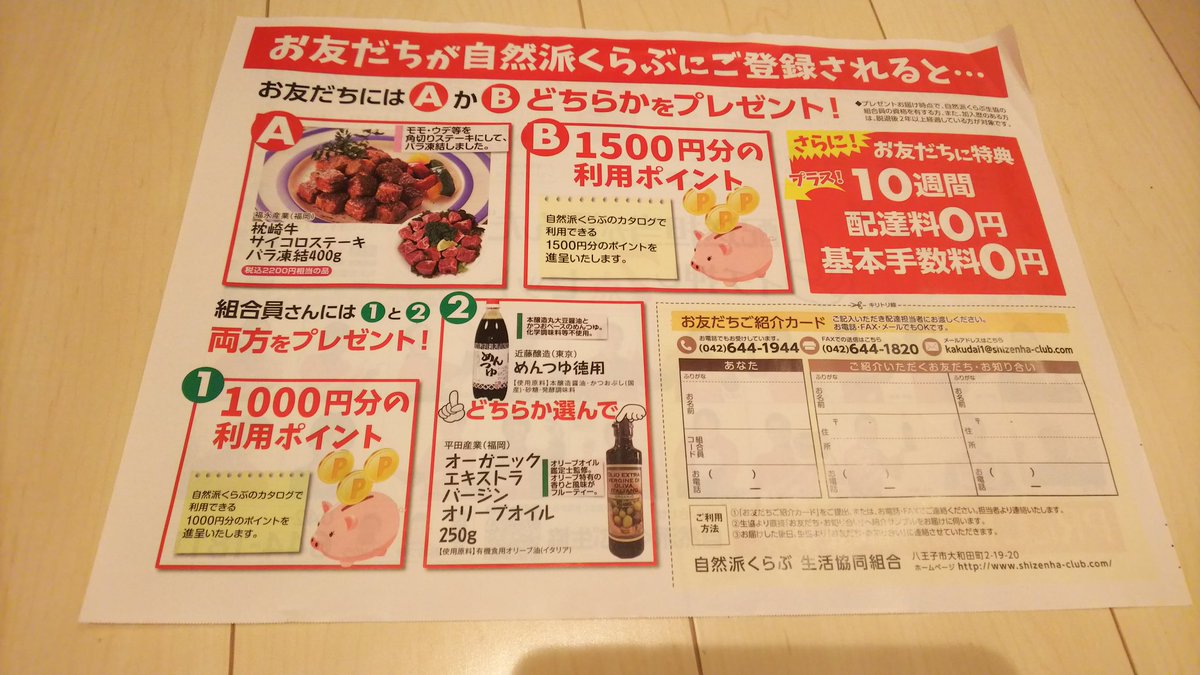 お友だちが自然派くらぶにご登録されると…
お友だちにはAかBどちらかをプレゼント!
◆プレゼントお届け時点で、自然派くらぶ生協の
組合員の資格を有する方、また、加入歴のある方
は、脱退後2年以上経過している方が対象です。
A
モモ・ウデ等を
角切りステーキにして、
バラ凍結しました。
福永産業(福岡)
枕崎牛
サイコロステーキ
バラ凍結400g
税込2200円相当の品
B
1500円分の
利用ポイント
自然派くらぶのカタログで
利用できる
1500円分のポイントを
進呈いたします。
P
P
P
さらに!
プラス!
お友だちに特典
10週間
配達料0円
基本手数料0円
組合員さんには1と2
両方をプレゼント!
1
1000円分の
利用ポイント
自然派くらぶのカタログで
利用できる
1000円分のポイントを
進呈いたします。
P
P
P
2
本醸造丸大豆醤油と
かつおベースのめんつゆ。
化学調味料等不使用。
めんつゆ
近藤醸造(東京)
めんつゆ徳用
【使用原料】本醸造醤油・かつおぶし(国
産)・砂糖・発酵調味料
どちらか選んで
平田産業(福岡)
オーガニック
エキストラ
バージン
オリーブオイル
250g
オリーブオイル
鑑定士監修。
オリーブ特有の
香りと風味が
フルーティー。
OLIO EXTRA
VERGINE DI
OLIVA
ITALIANO
【使用原料】有機食用オリーブ油(イタリア)
キリトリ線
お友だちご紹介カード
ご記入いただき配達担当者にお渡しください。
お電話・FAX・メールでもOKです。
お電話でもお受けしています。
(042)644-1944
FAXでの送信はこちら
(042)644-1820
メールアドレスはこちら
kakudai1@shizenha-club.com
あなた
ご紹介いただくお友だち・お知り合い
ふりがな
お名前
組合員コード
お電話
( )
ー
ふりがな
お名前
〒 -
住所
お電話
( )
ー
ふりがな
お名前
〒 -
住所
お電話
( )
ー
ご利用
方法
①「お友だちご紹介カード」をご提出、または、お電話・FAXでご連絡ください。担当者より連絡いたします。
②生協より直接「お友だち・お知り合い」へ紹介サンプルをお届けに伺います。
③お届けした後日、生協より「お友だち・お知り合い」に連絡させていただきます。
自然派くらぶ 生活協同組合
八王子市大和田町2-19-20
ホームページ http://www.shizenha-club.com/